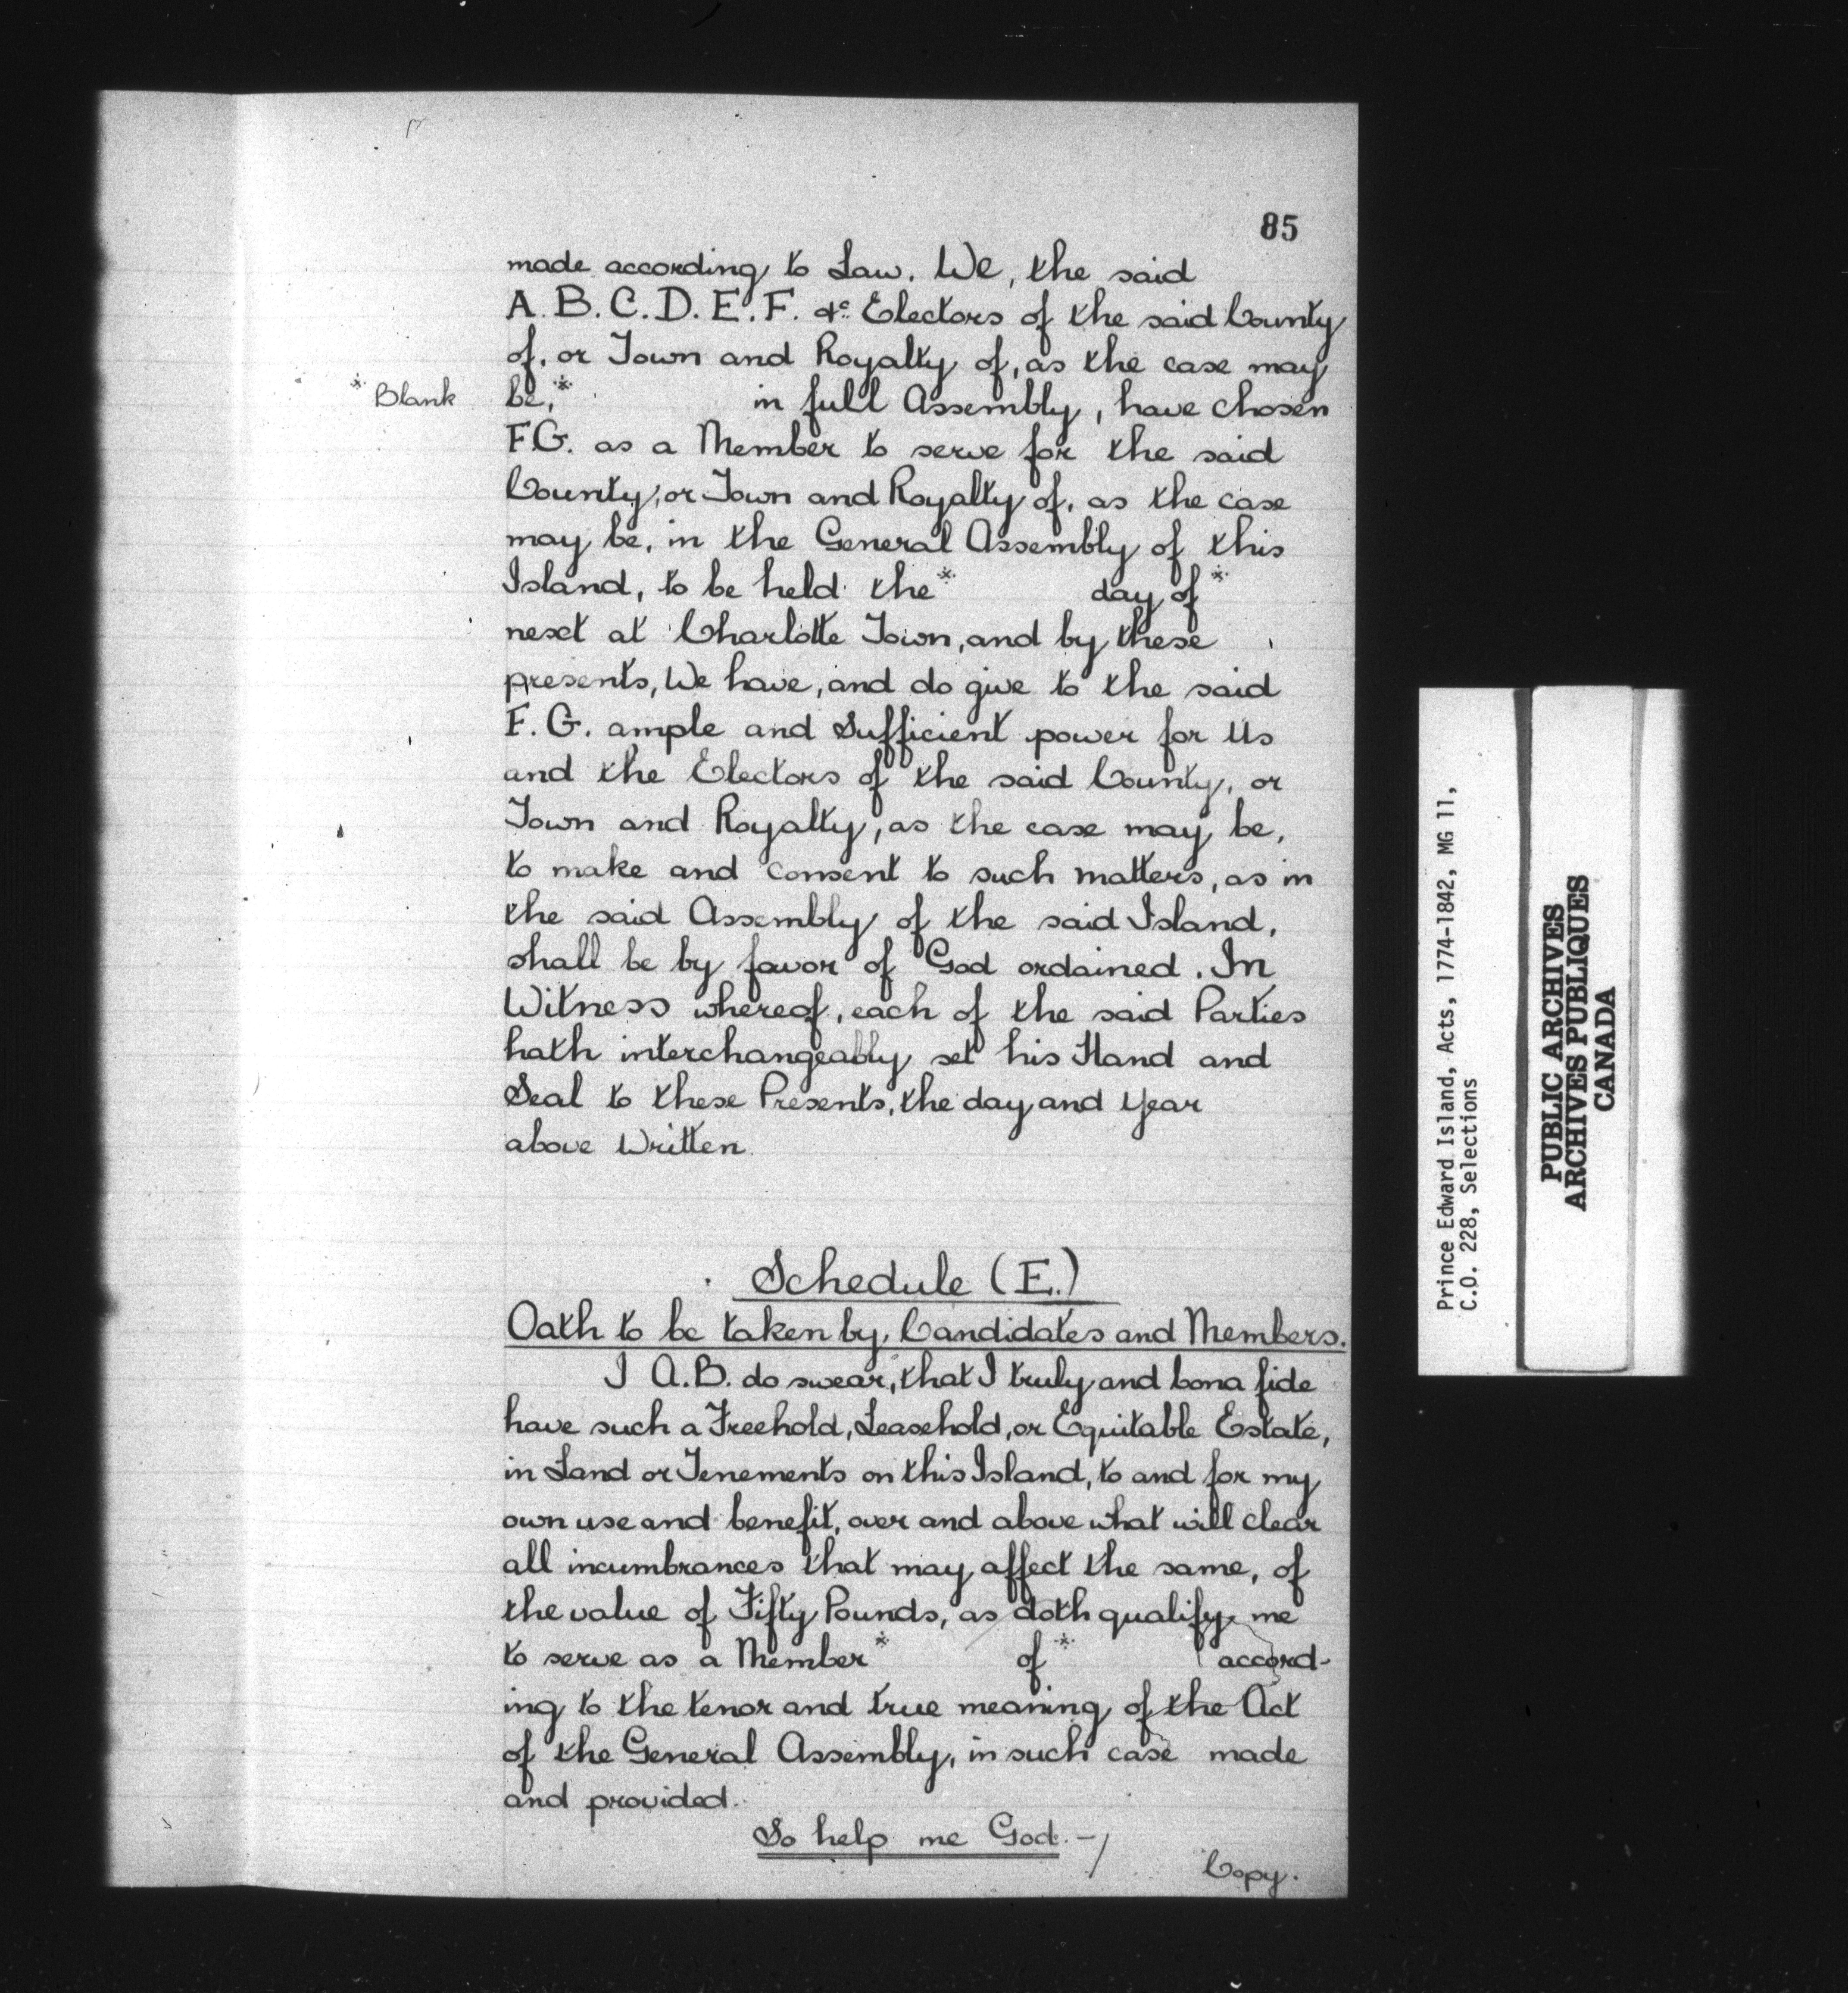 85
made according to Law. We, the said
A. B. C. D. E. F. &c. Electors of the said County
of, or Town and Royalty of, as the case may
* Blank
be,* in full Assembly, have chosen
F.G. as a Member to serve for the said
County, or Town and Royalty of, as the case
may be, in the General Assembly of this
Island, to be held the* day of*
next at Charlotte Town, and by these
presents, We have, and do give to the said
F. G. ample and Sufficient power for Us
and the Electors of the said County, or
Town and Royalty, as the case may be,
to make and consent to such matters, as in
the said Assembly of the said Island,
shall be by favor of God ordained. In
Witness whereof, each of the said Parties
hath interchangeably set his Hand and
Seal to these Presents, the day and Year
above Written.
Schedule (E.)
Oath to be taken by Candidates and Members.
I A.B. do swear, that I truly and bona fide
have such a Freehold, Leasehold, or Equitable Estate,
in Land or Tenements on this Island, to and for my
own use and benefit, over and above what will clear
all incumbrances that may affect the same, of
the value of Fifty Pounds, as doth qualify me
to serve as a Member* of* accord-
ing to the tenor and true meaning of the Act
of the General Assembly, in such case made
and provided.
So help me God. -/
Copy.
Prince Edward Island, Acts, 1774-1842, MG 11,
C.O. 228, Selections
PUBLIC ARCHIVES
ARCHIVES PUBLIQUES
CANADA